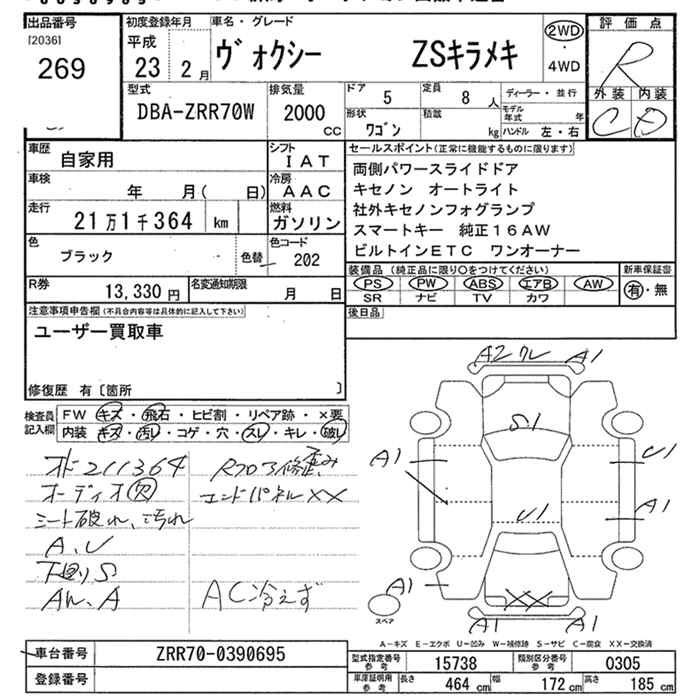 出品番号
[2036]
269
初度登録年月
平成
23 2月
車名・グレード
ヴォクシー ZSキラメキ
2WD
・
4WD
評価点
R
外装 内装
C D
型式
DBA-ZRR70W
排気量
2000
cc
ドア 5
定員 8人
ディーラー・並行
形状 ワゴン
積載 kg
モデル年式 年
ハンドル 左・右
車歴
自家用
シフト
IAT
車検
年 月( 日)
冷房
AAC
走行
21万1千364 km
燃料
ガソリン
色
ブラック
色替
色コード
202
R券
13,330円
名変通知期限
月 日
セールスポイント(正常に機能するものに限ります)
両側パワースライドドア
キセノン オートライト
社外キセノンフォグランプ
スマートキー 純正16AW
ビルトインETC ワンオーナー
装備品(純正品に限り○をつけてください)
新車保証書
PS PW ABS エアB AW
有・無
SR ナビ TV カワ
後日品
注意事項申告欄(不具合内容等は具体的に記入して下さい)
ユーザー買取車
修復歴 有〔箇所 〕
検査員記入欄
FW キズ・飛石・ヒビ割・リペア跡・×要
内装 キズ・汚レ・コゲ・穴・スレ・キレ・破レ
オド211364
オーディオ欠
シート破れ、汚れ
A、U
下廻りS
Aル、A
Rフロア修歪み
エンドパネルXX
AC冷えず
A2 ワレ A1
S1
A1
U1
U1
A1
A1
XX
A1 A1
スペア
A-キズ E-エクボ U-凹み W-補修跡 S-サビ C-腐食 XX-交換済
車台番号
ZRR70-0390695
登録番号
型式指定番号参考
15738
類別区分番号参考
0305
車庫証明用参考
長さ 464cm
幅 172cm
高さ 185cm